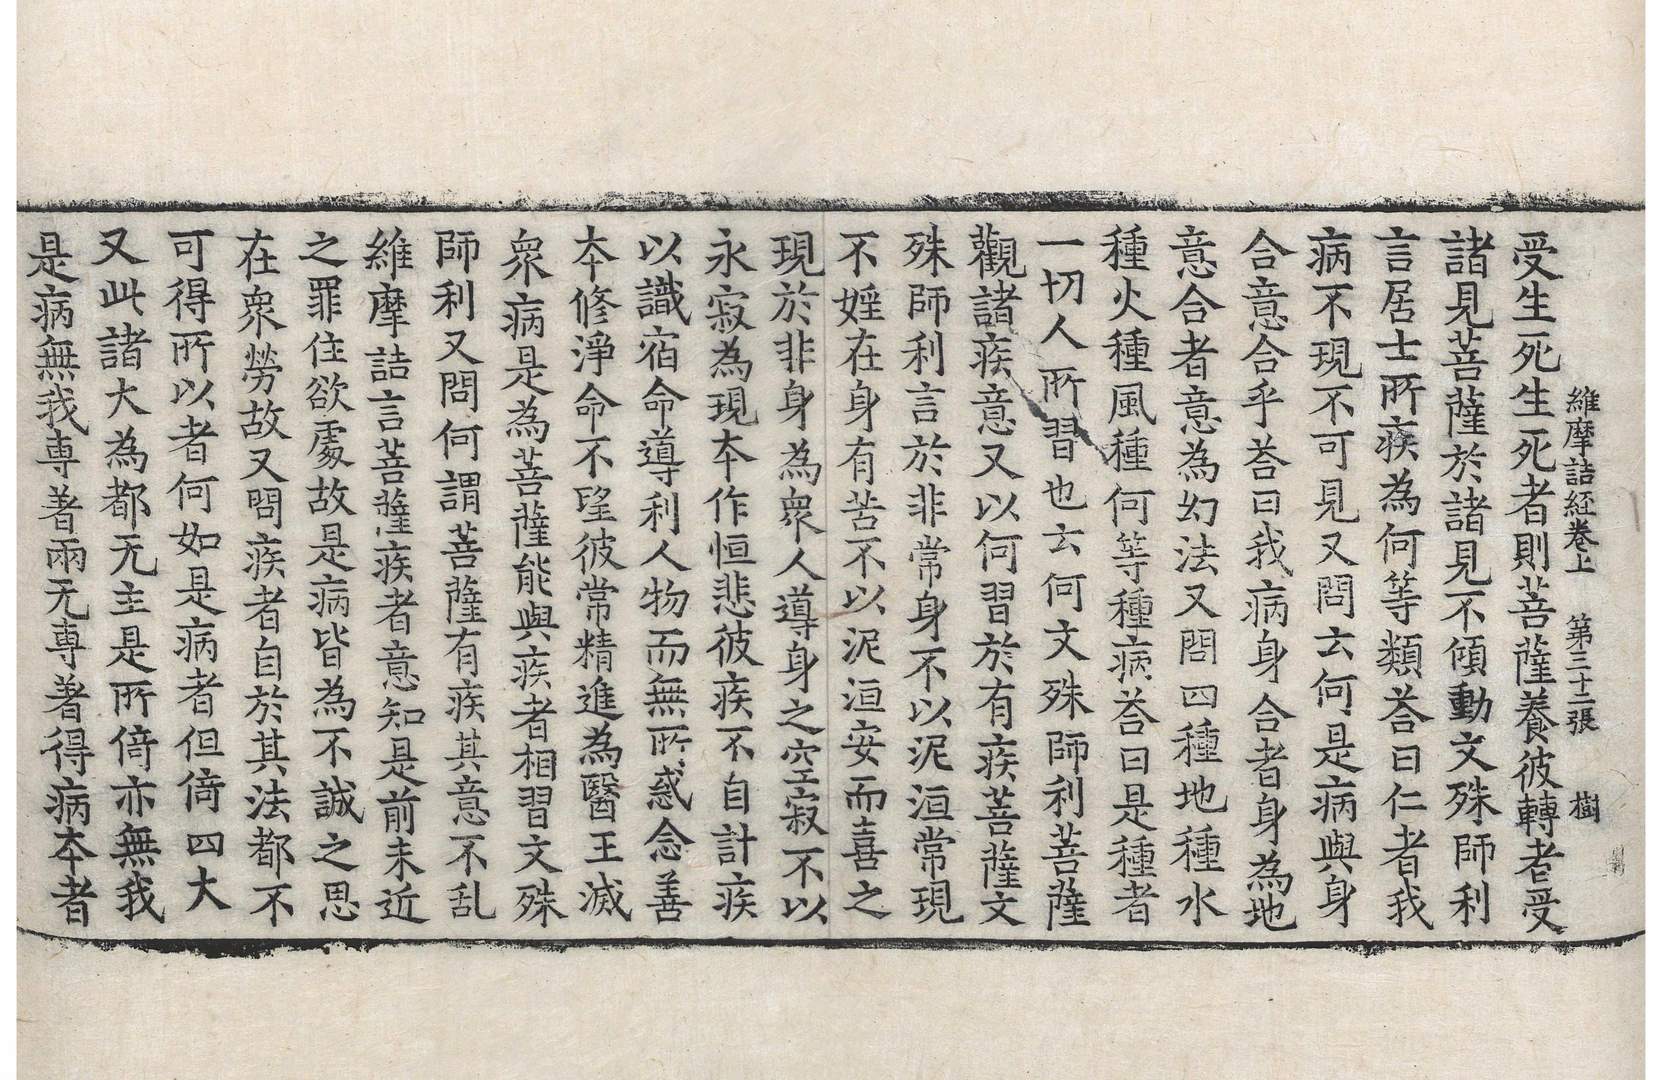 維摩詰経卷上 第三十二張 樹
受生死生死者則菩薩養彼轉者受
諸見菩薩於諸見不傾動文殊師利
言居士所疾為何等類荅曰仁者我
病不現不可見又問云何是病與身
合意合乎荅曰我病身合者身為地
意合者意為幻法又問四種地種水
種火種風種何等種病荅曰是種者
一切人所習也云何文殊師利菩薩
觀諸疾意又以何習於有疾菩薩文
殊師利言於非常身不以泥洹常現
不婬在身有苦不以泥洹安而喜之
現於非身為衆人導身之空寂不以
永寂為現夲作恒悲彼疾不自計疾
以識宿命導利人物而無所惑念善
夲修淨命不望彼常精進為醫王滅
衆病是為菩薩能與疾者相習文殊
師利又問何謂菩薩有疾其意不乱
維摩詰言菩薩疾者意知是前未近
之罪住欲處故是病皆為不誠之思
在衆勞故又問疾者自於其法都不
可得所以者何如是病者但倚四大
又此諸大為都无主是所倚亦無我
是病無我専著兩无専著得病夲者